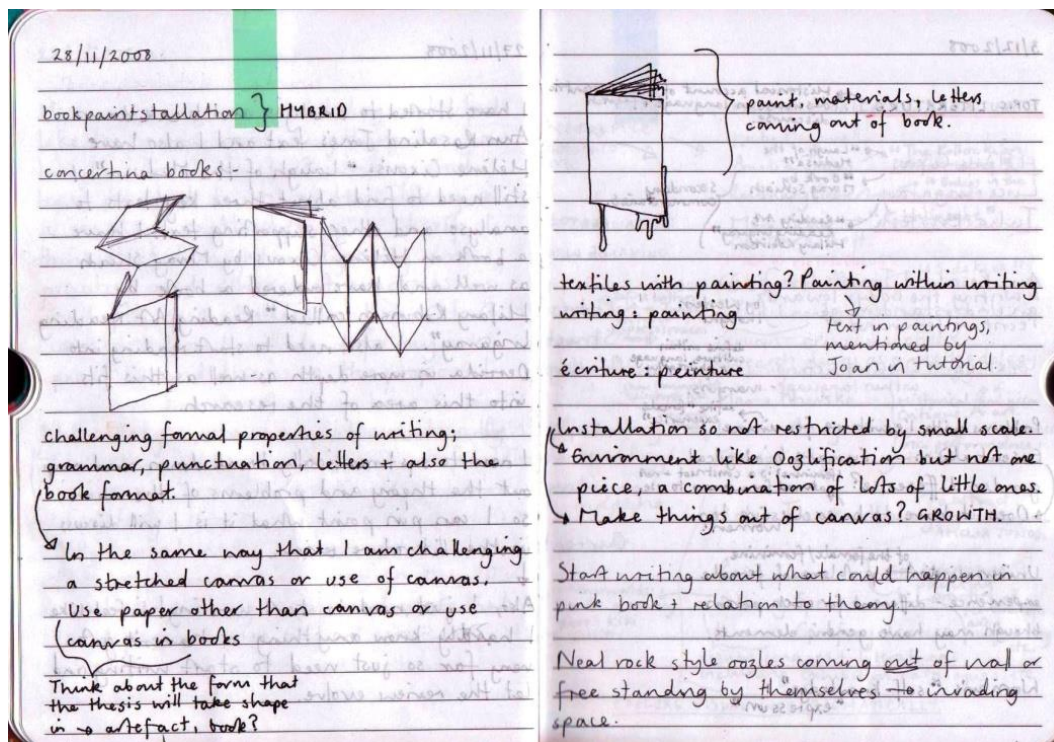 28/11/2008
bookpaintstallation } HYBRID
concertina books -
challenging formal properties of writing;
grammar, punctuation, letters + also the
book format.
In the same way that I am challenging
a stretched canvas or use of canvas.
Use paper other than canvas or use
canvas in books
Think about the form that
the thesis will take shape
in → artefact, book?
paint, materials, letters
coming out of book.
textiles with painting? Painting within writing
writing : painting
text in paintings,
mentioned by
Joan in tutorial.
écriture : peinture
Installation so not restricted by small scale.
Environment like Oozlification but not one
piece, a combination of lots of little ones.
Make things out of canvas? GROWTH.
Start writing about what could happen in
pink book + relation to theory.
Neal rock style oozles coming out of wall or
free standing by themselves → invading
space.